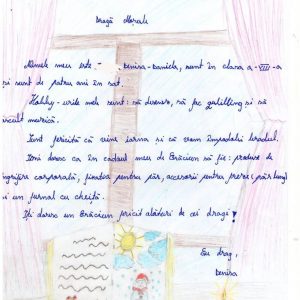 Dragă Moșule
Numele meu este Denisa-Daniela, sunt în clasa a-VII-a
și sunt de patru ani în sat.
Hobby-urile mele sunt: să desenez, să fac quilling și să
ascult muzică.
Sunt fericită că vine iarna și că vom împodobi bradul.
Îmi doresc ca în cadoul meu de Crăciun să fie: produse de
îngrijire corporală, pentru păr, accesorii pentru
și un jurnal cu cheiță.
Îți doresc un Crăciun fericit alături de cei dragi!
Cu drag,
Denisa